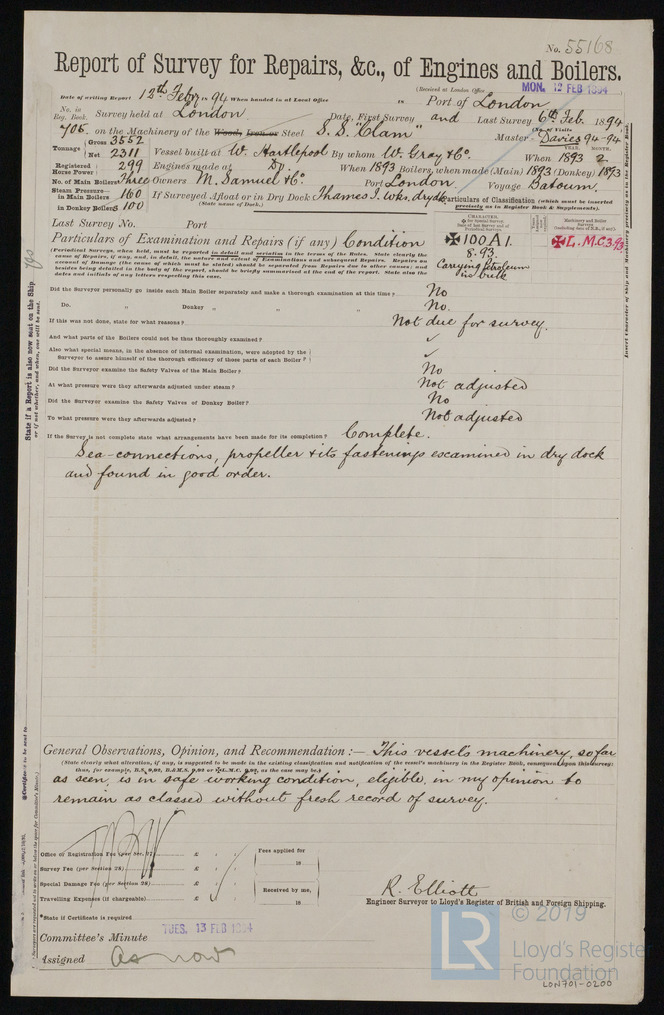 No. 55168
Report of Survey for Repairs, &c., of Engines and Boilers.
(Received at London Office MON. 12 FEB 1894
Date of writing Report 12th Feby 1894 When handed in at Local Office 18 Port of London
No. in Reg. Book. Survey held at London Date, First Survey and Last Survey 6th Feb. 1894
705. on the Machinery of the Wood, Iron or Steel S.S. "Clam" Master Davies 94-94
(No. of Visits
Tonnage Gross 3552
Net 2311 Vessel built at W. Hartlepool By whom W. Gray & Co. When 1893 2
YEAR. MONTH.
Registered Horse Power 299 Engines made at Do. When 1893 Boilers, when made (Main) 1893 (Donkey) 1893
No. of Main Boilers Three Owners M. Samuel & Co. Port London Voyage Batoum.
Steam Pressure in Main Boilers 160 If Surveyed Afloat or in Dry Dock Thames I. Wks. dry dk.
in Donkey Boilers 100 (State name of Dock.)
Particulars of Classification (which must be inserted precisely as in Register Book & Supplements).
Last Survey No. Port
CHARACTER,
Machinery and Boiler Surveys
Particulars of Examination and Repairs (if any) Condition
✠100A1. ✠L.M.C.3.93
8.93
Carrying Petroleum in bulk
(Periodical Surveys, when held, must be reported in detail and seriatim in the terms of the Rules. State clearly the
cause of Repairs, if any, and, in detail, the nature and extent of Examinations and subsequent Repairs. Repairs on
account of Damage (the cause of which must be stated) should be separated from Repairs due to other causes; and
besides being detailed in the body of the report, should be briefly summarised at the end of the report. State also the
dates and initials of any letters respecting this case.
Did the Surveyor personally go inside each Main Boiler separately and make a thorough examination at this time? No
Do. " Donkey " " " No.
If this was not done, state for what reasons? Not due for survey.
And what parts of the Boilers could not be thus thoroughly examined? ✓
Also what special means, in the absence of internal examination, were adopted by the
Surveyor to assure himself of the thorough efficiency of those parts of each Boiler? ✓
Did the Surveyor examine the Safety Valves of the Main Boiler? No
At what pressure were they afterwards adjusted under steam? Not adjusted
Did the Surveyor examine the Safety Valves of Donkey Boiler? No
To what pressure were they afterwards adjusted? Not adjusted
If the Survey is not complete state what arrangements have been made for its completion? Complete.
Sea-connections, propeller & its fastenings examined in dry dock
and found in good order.
State if a Report is also now sent on the Ship
or if not whether, and when, one will be sent.
Insert Character of Ship and Machinery precisely as in the Register Book
General Observations, Opinion, and Recommendation:— This vessel's machinery, so far
(State clearly what alteration, if any, is suggested to be made in the existing classification and notification of the vessel's machinery in the Register Book, consequent upon this survey:
thus, for example, B.S. 9,92, B.&M.S. 9,92 or ✠L.M.C. 9,92, as the case may be.)
as seen, is in safe working condition, eligible, in my opinion to
remain as classed without fresh record of survey.
Office or Registration Fee (per Sec. 27) £ : :
Survey Fee (per Section 28) £ : :
Special Damage Fee (per Section 28) £ : :
Travelling Expenses (if chargeable) £ : :
Fees applied for
18
Received by me,
18
R. Elliott
Engineer Surveyor to Lloyd's Register of British and Foreign Shipping.
*State if Certificate is required
Committee's Minute TUES. 13 FEB 1894
Assigned As now
LR
© 2019
Lloyd's Register
Foundation
LON701-0200